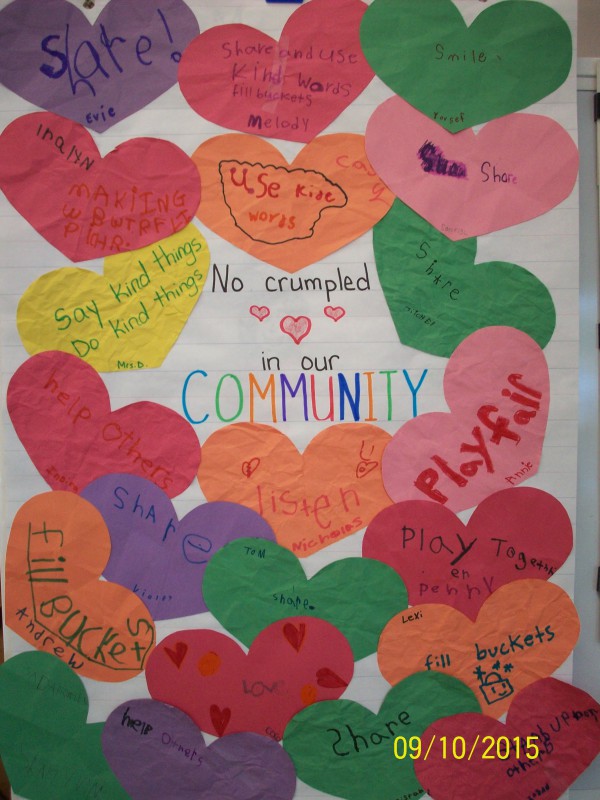 Share!
Evie
Share and use
kind words
fill buckets
Melody
Smile.
Yousef
Inalyn
MAKIING
Use kide
words
Share
Share
Say kind things
Do kind things
Mrs. D.
No crumpled
in our
COMMUNITY
help others
Playfair
Annie
listen
Nicholas
ShAre
Violet
Tom
share.
PLay Together
Penny
fill
Buckets
Andrew
Lexi
fill buckets
Love
help others
Share
others
09/10/2015